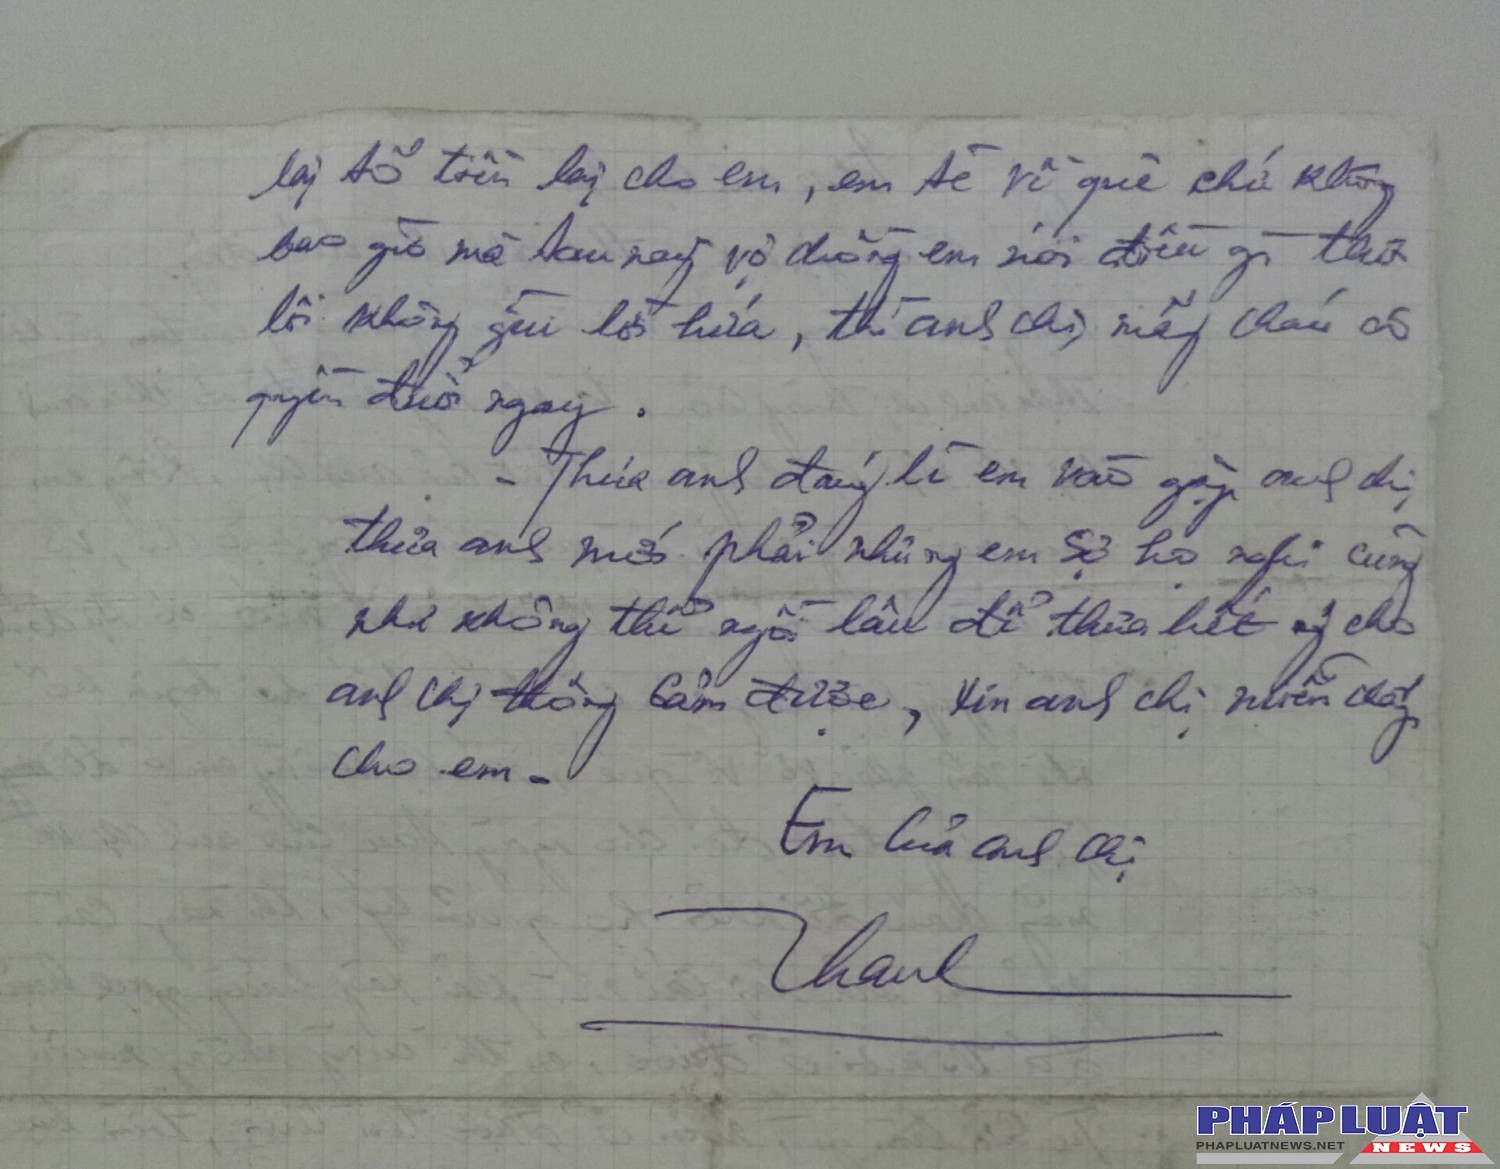 lại số tiền lại cho em, em sẽ về quê chứ không
bao giờ mà sau này vợ chồng em nói điều gì thứ
lỗi không giữ lời hứa, thì anh chị mấy cháu có
quyền đuổi ngay.
- Thưa anh đáng lí em vào gặp anh chị
thưa anh mới phải nhưng em sợ họ nghi cũng
như không thể ngồi lâu để thưa hết ý cho
anh chị thông cảm được, xin anh chị miễn chấp
cho em -
Em của anh chị
Thanh
PHÁP LUẬT
NEWS
PHAPLUATNEWS.NET